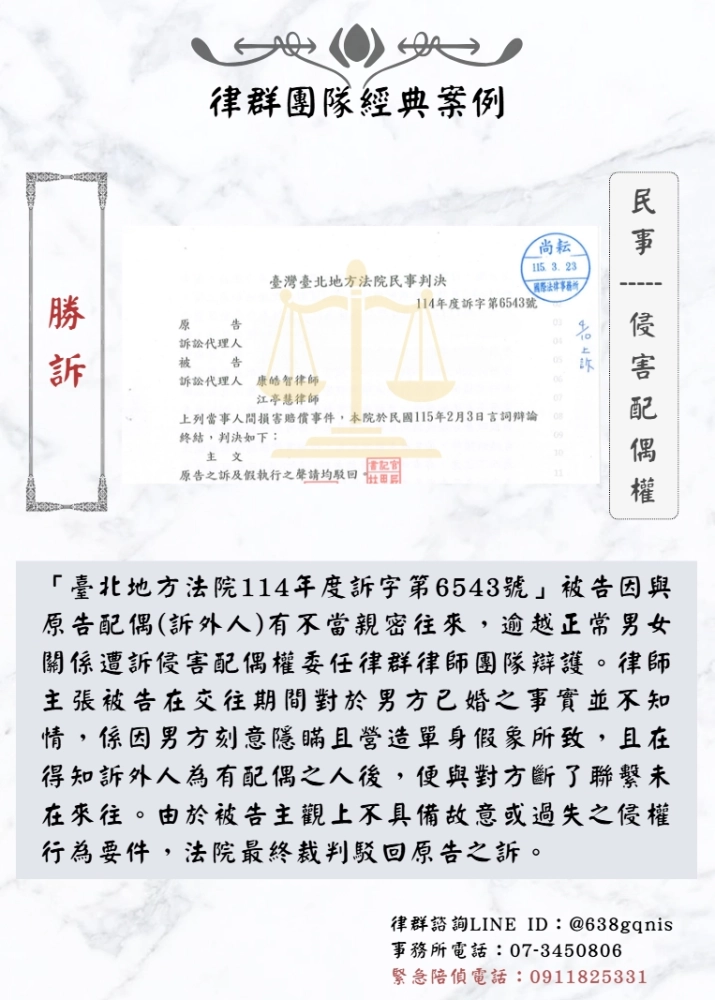 律群團隊經典案例
勝訴
民事-----侵害配偶權
尚耘
115. 3. 23
國際法律事務所
臺灣臺北地方法院民事判決
114年度訴字第6543號
原 告
訴訟代理人
被 告
訴訟代理人 康皓智律師
江亭慧律師
上列當事人間損害賠償事件，本院於民國115年2月3日言詞辯論
終結，判決如下：
主 文
原告之訴及假執行之聲請均駁回。
「臺北地方法院114年度訴字第6543號」被告因與
原告配偶(訴外人)有不當親密往來，逾越正常男女
關係遭訴侵害配偶權委任律群律師團隊辯護。律師
主張被告在交往期間對於男方已婚之事實並不知
情，係因男方刻意隱瞞且營造單身假象所致，且在
得知訴外人為有配偶之人後，便與對方斷了聯繫未
在來往。由於被告主觀上不具備故意或過失之侵權
行為要件，法院最終裁判駁回原告之訴。
律群諮詢LINE ID：@638gqnis
事務所電話：07-3450806
緊急陪偵電話：0911825331